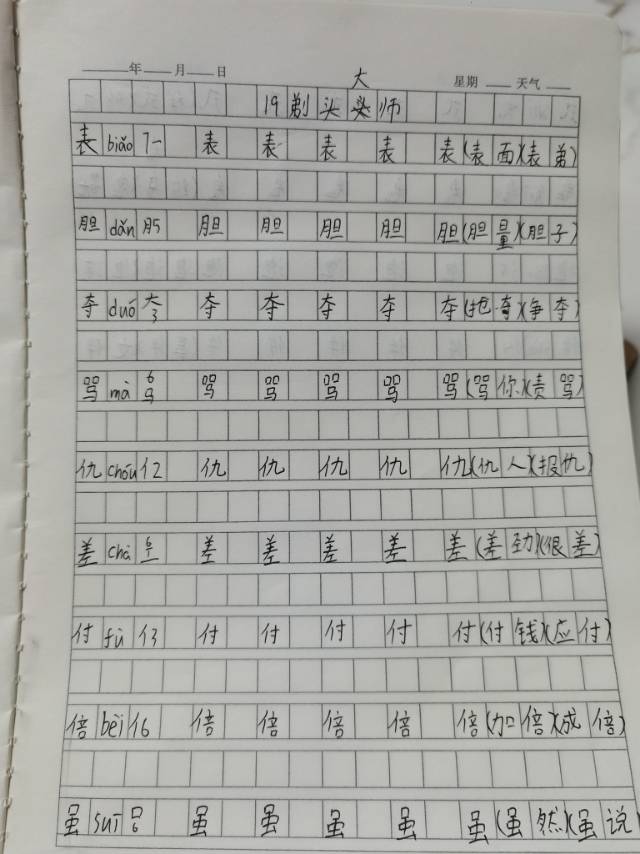 年 月 日 星期 天气
大
19 剃头师
表 biǎo 7一 表 表 表 表 表(表面)(表弟)
胆 dǎn 月5 胆 胆 胆 胆 胆(胆量)(胆子)
夺 duó 大3 夺 夺 夺 夺 夺(抢夺)(争夺)
骂 mà 6马 骂 骂 骂 骂 骂(骂你)(责骂)
仇 chóu 亻2 仇 仇 仇 仇 仇(仇人)(报仇)
差 chà 6工 差 差 差 差 差(差劲)(很差)
付 fù 亻3 付 付 付 付 付(付钱)(应付)
倍 bèi 亻6 倍 倍 倍 倍 倍(加倍)(成倍)
虽 suī 口6 虽 虽 虽 虽 虽(虽然)(虽说